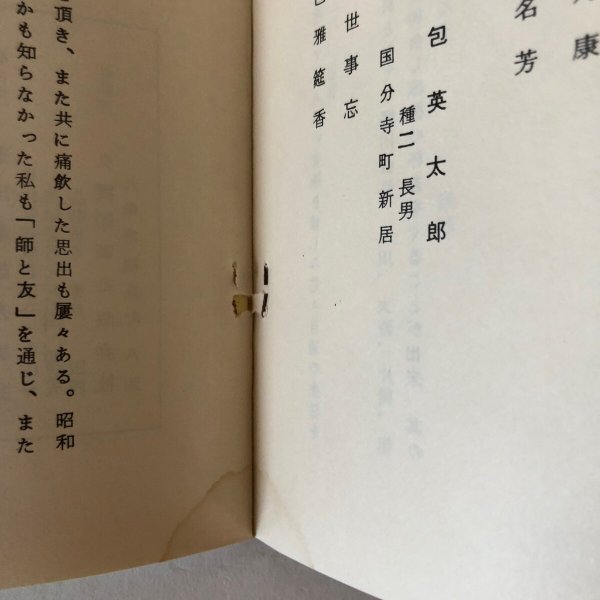 康
名芳
包英太郎
種二長男
国分寺町新居
世事忘
雅筵香
頂き、また共に痛飲した思出も屢々ある。昭和
かも知らなかった私も「師と友」を通じ、また